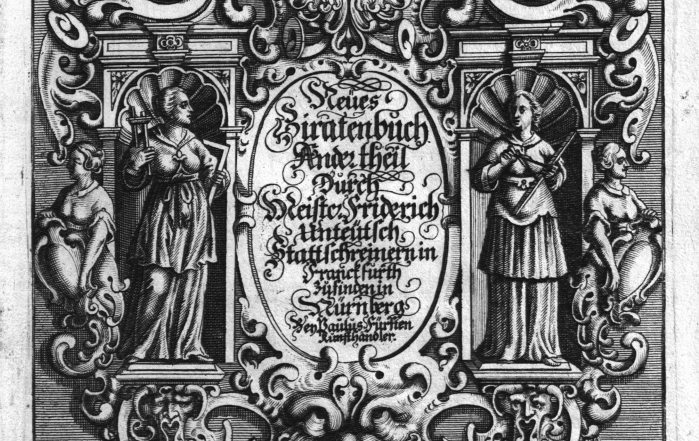 Neües
Ziratenbuch
Ander theil
Durch
Meister Friderich
Unteütsch
Stattschreinern in
Franckfurth
Zufinden in
Nürnberg
Bey Paulus Fürsten
Kunsthändler.